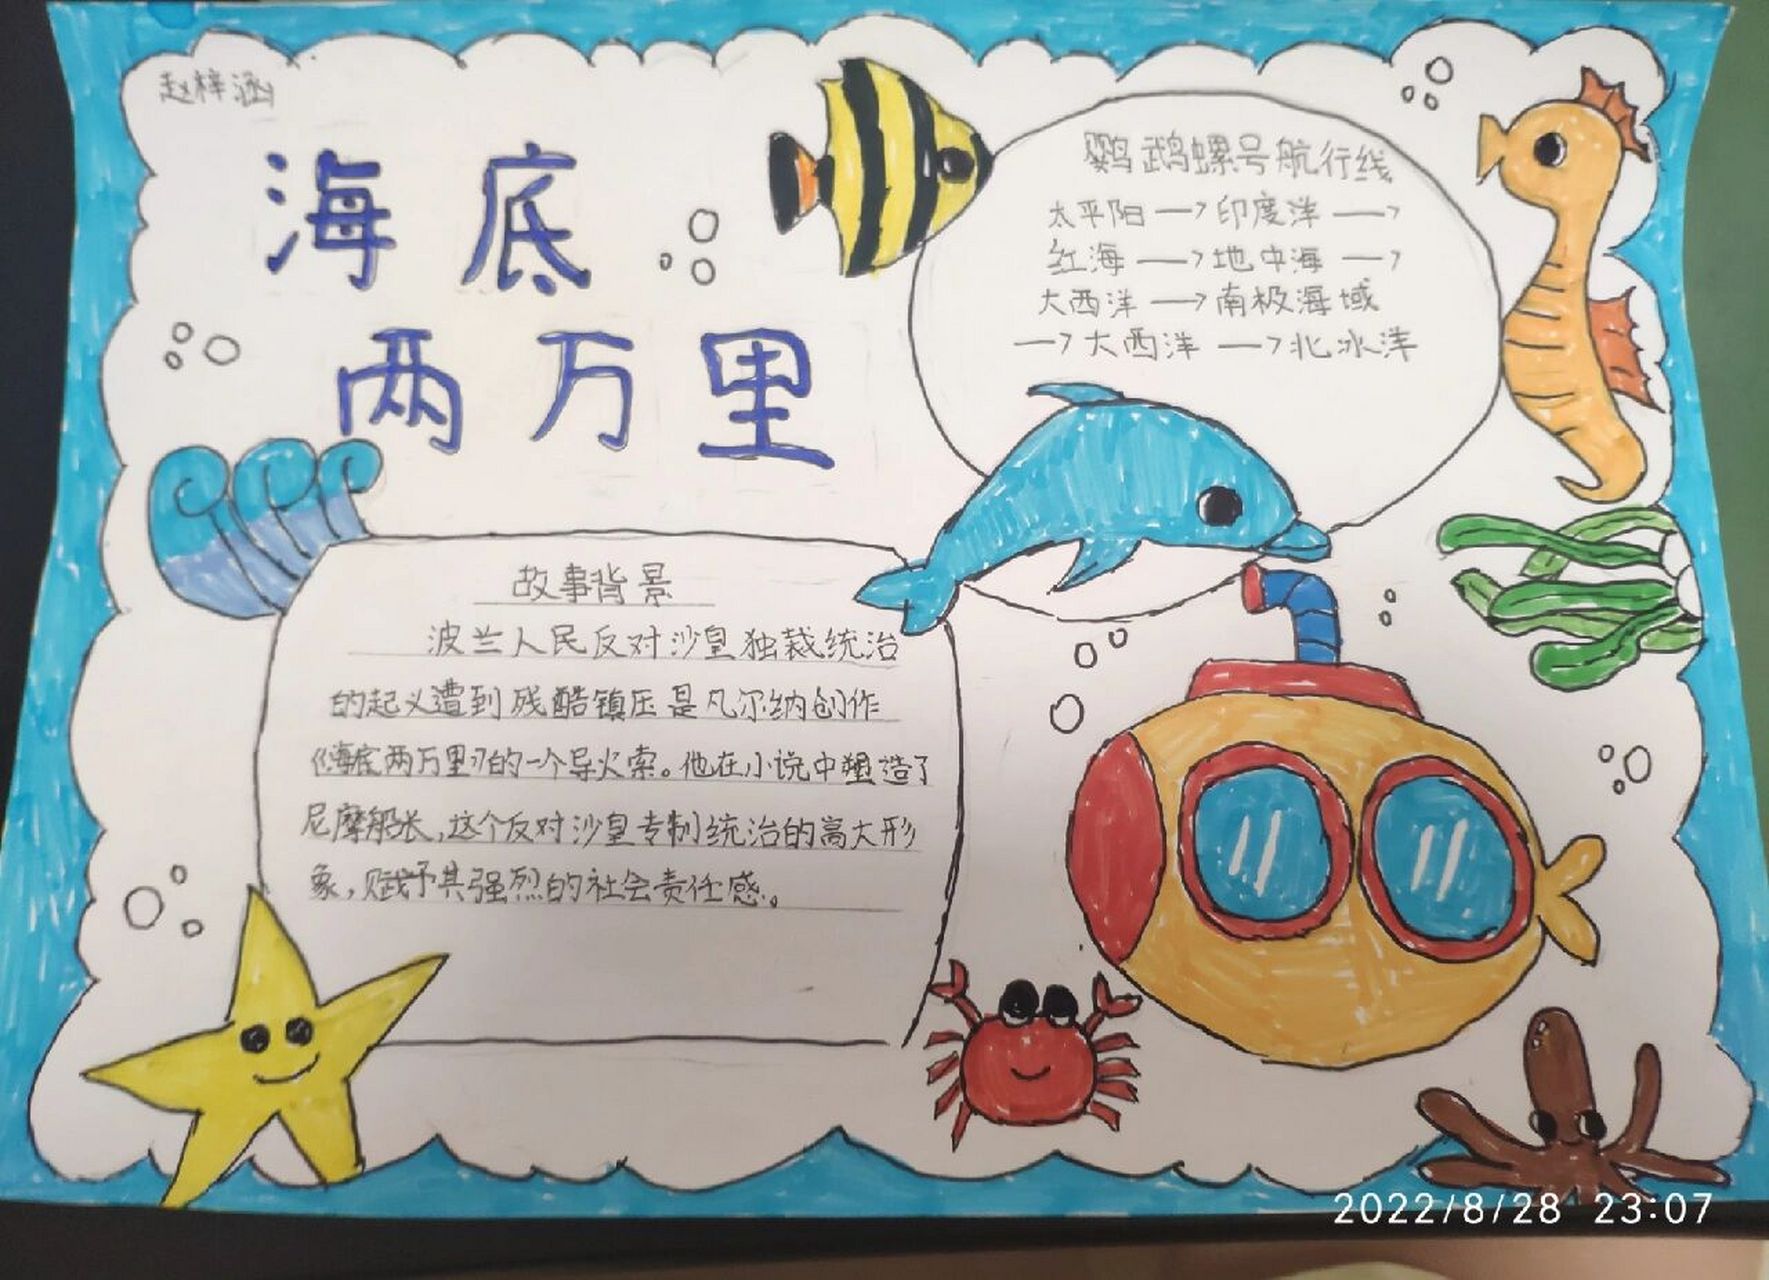 赵梓涵
海底
两万里
鹦鹉螺号航行线
太平阳—>印度洋—>
红海—>地中海—>
大西洋—>南极海域
—>大西洋—>北冰洋
故事背景
波兰人民反对沙皇独裁统治
的起义遭到残酷镇压是凡尔纳创作
《海底两万里》的一个导火索。他在小说中塑造了
尼摩船长,这个反对沙皇专制统治的高大形
象,赋予其强烈的社会责任感。
2022/8/28 23:07